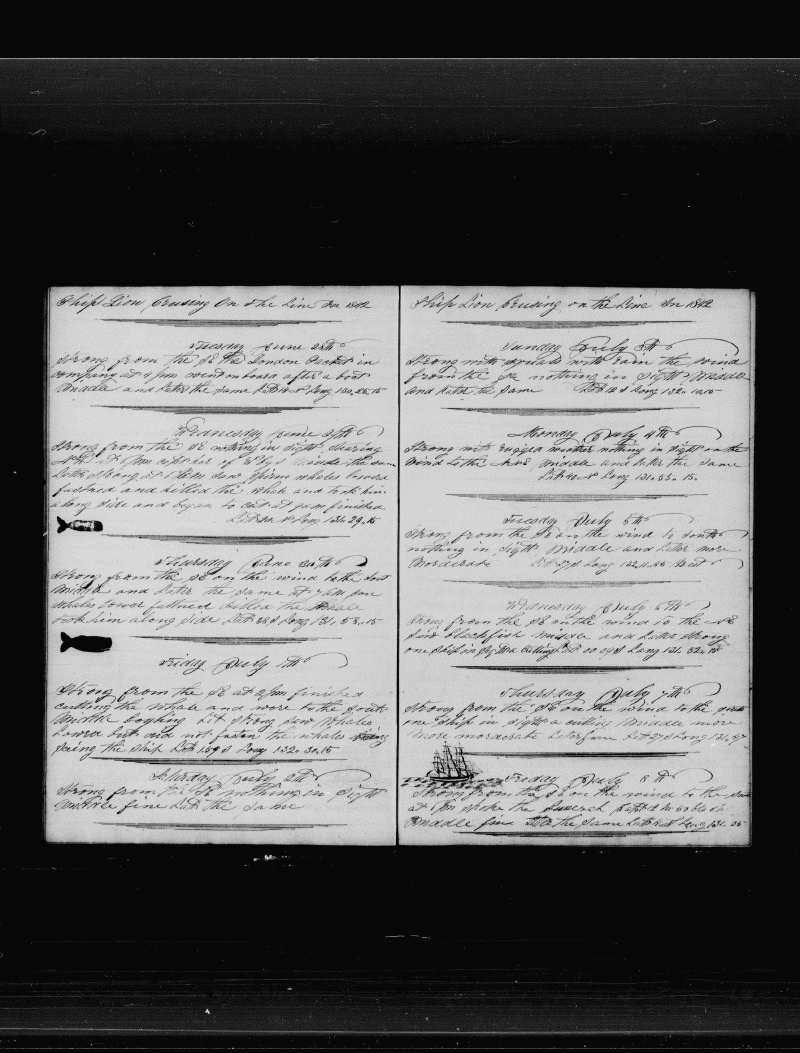 Ship Lion Crusing On the Line In 1842
Tuesday June 28th
Strong from the SE the London Packet in
company at 4 pm went on board after a boat
Middle and Later the same Long 130,,25,,15
Wednesday June 29th
Strong from the SE nothing in sight stearing
Middle the same
Later strong at saw Sperm whales lowerd
fastned and killed the whale and took him
along side and began to cut at pm finished
Long 131,,29,,15
Thursday June 30th
Strong from the SE on the wind to the Sout
Middle and Later the same at 7 AM saw
whales lower fastned killed the whale
took him along side Long 131,,53,,15
Friday July 1th
Strong from the SE at 2 pm finished
cutting the whale and wore to the South
Middle Lat strong saw Whales
Lowerd but did not fasten the whales
the Ship Long 132,,30,,15
Saturday July 2th
Strong from the SE nothing in sight
Middle fine Later the same
Ship Lion Crusing on the Line In 1842
Sunday July 3th
Strong with squals with rain the wind
from the SE nothing in sight Middle
and Later the same Long 132,,10,,15
Monday July 4th
Strong with rugged weather nothing in sight on the
wind to the Middle and Later the same
Long 131,,55,,15
Tuesday July 5th
Strong from the SE on the wind to South
nothing in sight Middle and Later more
Morderate Long 132,,11,,45 West
Wednesday July 6th
Strong from the SE on the wind to the NE
saw blackfish Middle and Later strong
one ship in sight cutting Long 131,,52,,15
Thursday July 7th
Strong from the SE on the wind to the
one ship in sight a cutting Middle more
More morderate Later fine Long
Friday July 8th
Strong from the SE on the wind to the
at spoke the
Middle fine Later the same Long 131,,35